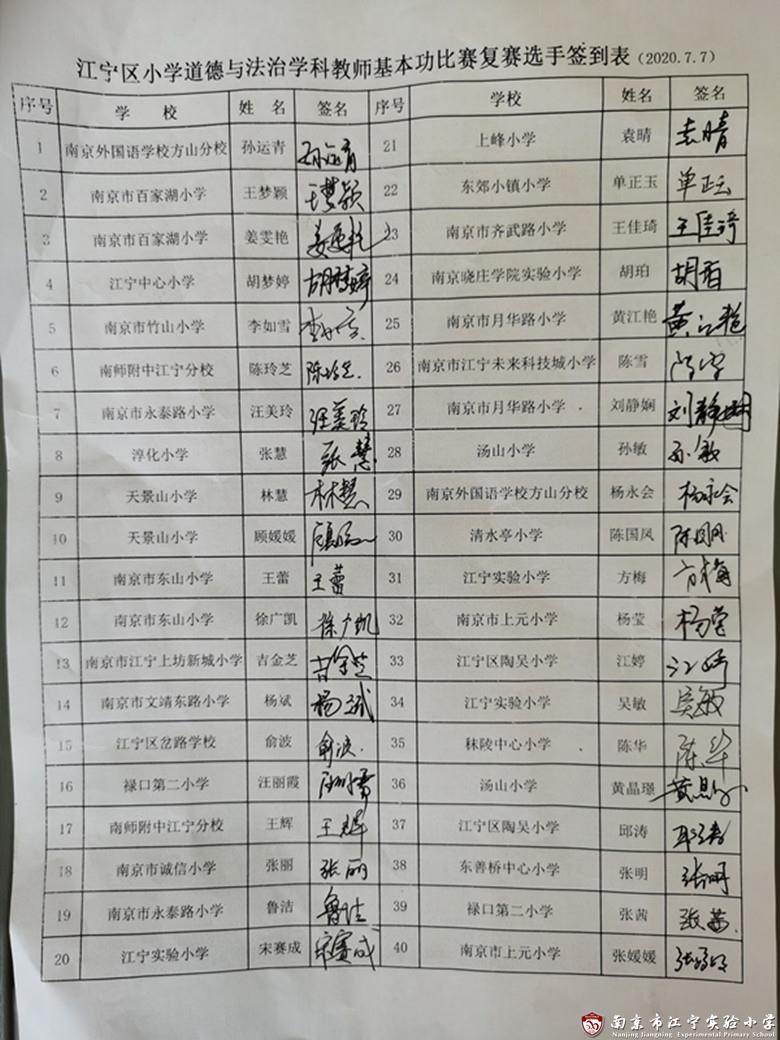 江宁区小学道德与法治学科教师基本功比赛复赛选手签到表（2020.7.7）
序号 学 校 姓 名 签名 序号 学校 姓名 签名
1 南京外国语学校方山分校 孙运青 孙运青 21 上峰小学 袁晴 袁晴
2 南京市百家湖小学 王梦颖 王梦颖 22 东郊小镇小学 单正玉 单正玉
3 南京市百家湖小学 姜雯艳 姜雯艳 23 南京市齐武路小学 王佳琦 王佳琦
4 江宁中心小学 胡梦婷 胡梦婷 24 南京晓庄学院实验小学 胡珀 胡珀
5 南京市竹山小学 李如雪 李如雪 25 南京市月华路小学 黄江艳 黄江艳
6 南师附中江宁分校 陈玲芝 陈玲芝 26 南京市江宁未来科技城小学 陈雪 陈雪
7 南京市永泰路小学 汪美玲 汪美玲 27 南京市月华路小学 刘静娴 刘静娴
8 淳化小学 张慧 张慧 28 汤山小学 孙敏 孙敏
9 天景山小学 林慧 林慧 29 南京外国语学校方山分校 杨永会 杨永会
10 天景山小学 顾媛媛 顾媛媛 30 清水亭小学 陈国凤 陈国凤
11 南京市东山小学 王蕾 王蕾 31 江宁实验小学 方梅 方梅
12 南京市东山小学 徐广凯 徐广凯 32 南京市上元小学 杨莹 杨莹
13 南京市江宁上坊新城小学 吉金芝 吉金芝 33 江宁区陶吴小学 江婷 江婷
14 南京市文靖东路小学 杨斌 杨斌 34 江宁实验小学 吴敏 吴敏
15 江宁区岔路学校 俞波 俞波 35 秣陵中心小学 陈华 陈华
16 禄口第二小学 汪丽霞 汪丽霞 36 汤山小学 黄晶璟 黄晶璟
17 南师附中江宁分校 王辉 王辉 37 江宁区陶吴小学 邱涛 邱涛
18 南京市诚信小学 张丽 张丽 38 东善桥中心小学 张明 张明
19 南京市永泰路小学 鲁洁 鲁洁 39 禄口第二小学 张茜 张茜
20 江宁实验小学 宋赛成 宋赛成 40 南京市上元小学 张媛媛 张媛媛
南京市江宁实验小学
Nanjing Jiangning Experimental Primary School